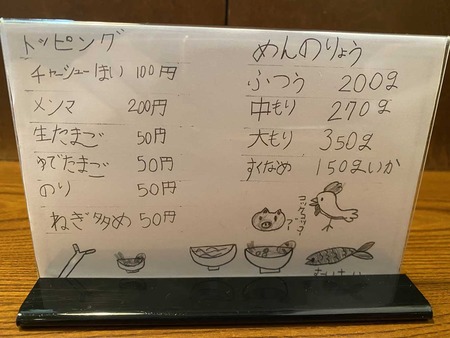 トッピング
チャーシューはい 100円
メンマ 200円
生たまご 50円
ゆでたまご 50円
のり 50円
ねぎ多め 50円
めんのりょう
ふつう 200g
中もり 270g
大もり 350g
すくなめ 150gいか
コケコッコー